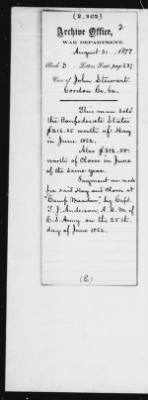 (2,202)
2
Archive Office,
WAR DEPARTMENT,
August 31, 1877
Book 3 Letters Rec'd, page 231
Case of John Stewart
Gordon Co. Ga.
This man sold
the Confederate States
worth of Hay
in June 1862.
Also
worth of Clover in June
of the same year.
Payment was made
for said Hay and Clover at
"Camp Meadow", by Capt.
T. J. Anderson, A. Q. M. of
C. S. Army on the 25th
day of June 1862.